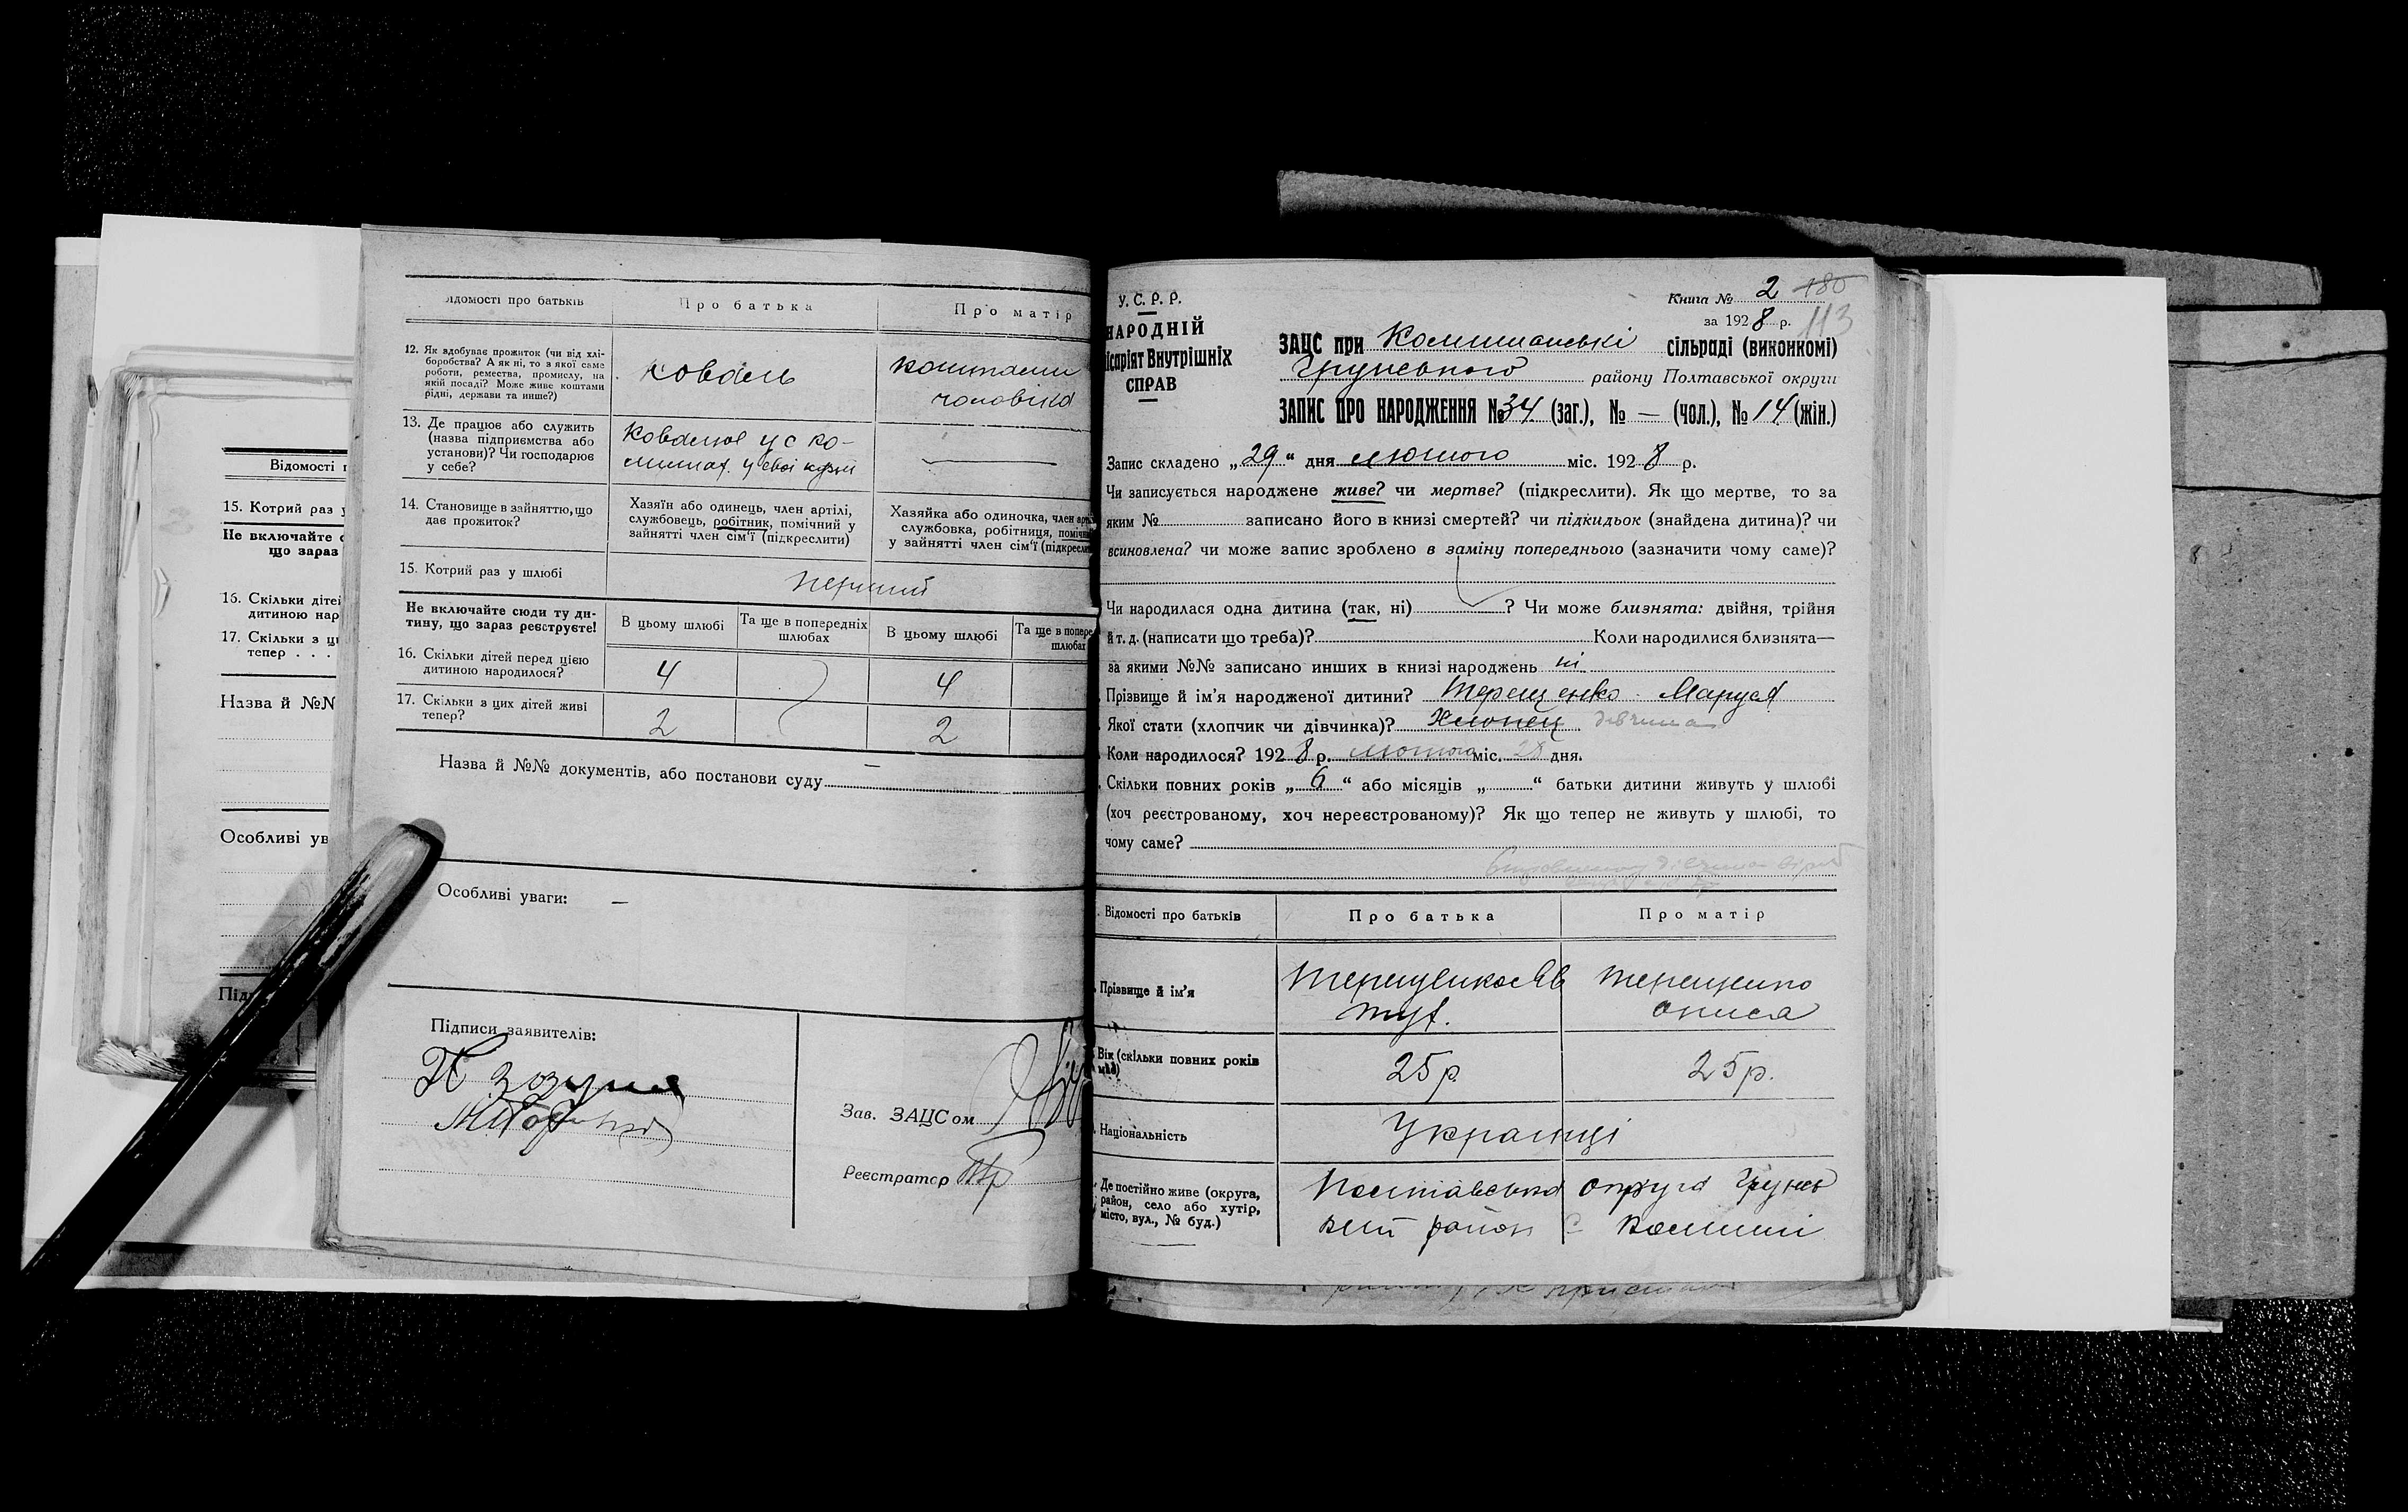 Відомості п
15. Котрий раз у
Не включайте с
що зараз
16. Скільки дітей
дитиною нар
17. Скільки з ци
тепер . . .
Назва й №№
Особливі ув
Під
ідомості про батьків
Про батька
Про матір
12. Як здобуває прожиток (чи від хлі-
боробства? А як ні, то з якої саме
роботи, ремества, промислу, на
якій посаді? Може живе коштами
рідні, держави та инше?)
коваль
коштами
чоловіка
13. Де працює або служить
(назва підприємства або
установи)? Чи господарює
у себе?
Ковалює у с Ко-
мишах. у свої кузні
—
14. Становище в зайняттю, що
дає прожиток?
Хазяїн або одинець, член артілі,
службовець, робітник, помічний у
зайнятті член сім'ї (підкреслити)
Хазяйка або одиночка, член арті
службовка, робітниця, помічн
у зайнятті член сім'ї (підкресли
15. Котрий раз у шлюбі
перший
Не включайте сюди ту ди-
тину, що зараз реєструєте!
В цьому шлюбі
Та ще в попередніх
шлюбах
В цьому шлюбі
Та ще в попере
шлюбах
16. Скільки дітей перед цією
дитиною народилося?
4
4
17. Скільки з цих дітей живі
тепер?
2
2
Назва й №№ документів, або постанови суду —
Особливі уваги: —
Підписи заявителів:
Зозуля
Зав. ЗАЦСом
Реєстратор
У. С. Р. Р.
НАРОДНІЙ
ісаріят Внутрішніх
СПРАВ
Книга № 2 180
за 1928 р. 113
ЗАЦС при Комишанські сільраді (виконкомі)
Грунського району Полтавської округи
ЗАПИС ПРО НАРОДЖЕННЯ № 34 (заг.), № — (чол.), № 14 (жін.)
Запис складено „29“ дня лютого міс. 1928 р.
Чи записується народжене живе? чи мертве? (підкреслити). Як що мертве, то за
яким № записано його в книзі смертей? чи підкидьок (знайдена дитина)? чи
всиновлена? чи може запис зроблено в заміну попереднього (зазначити чому саме)?
Чи народилася одна дитина (так, ні) ? Чи може близнята: двійня, трійня
й т. д. (написати що треба)? Коли народилися близнята—
за якими №№ записано инших в книзі народжень ні
Прізвище й ім'я народженої дитини? Терещенко Маруся
Якої стати (хлопчик чи дівчинка)? Хлопец дівчина
Коли народилося? 1928 р. лютого міс. 28 дня.
Скільки повних років „6“ або місяців „ “ батьки дитини живуть у шлюбі
(хоч реєстрованому, хоч нереєстрованому)? Як що тепер не живуть у шлюбі, то
чому саме?
Відомості про батьків
Про батька
Про матір
Прізвище й ім'я
Терещенко Яв
тух.
Терещенко
Онися
Вік (скільки повних років
має)
25 р.
25 р.
Національність
Українці
Де постійно живе (округа,
район, село або хутір,
місто, вул., № буд.)
Полтавська округа Грунсь
кий район с Комиші